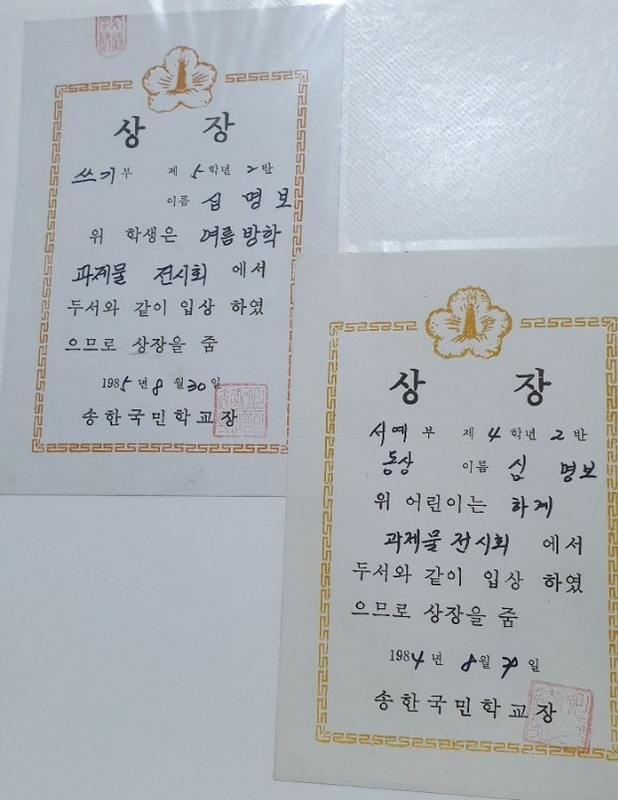 상 장
쓰기부 제 5학년 2반
이름 심 명 보
위 학생은 여름방학
과제물 전시회 에서
두서와 같이 입상 하였
으므로 상장을 줌
1985년 8월 30일
송한국민학교장
상 장
서예 부 제 4 학년 2 반
동상 이름 심 명보
위 어린이는 하계
과제물 전시회 에서
두서와 같이 입상 하였
으므로 상장을 줌
1984년 8월 일
송한국민학교장